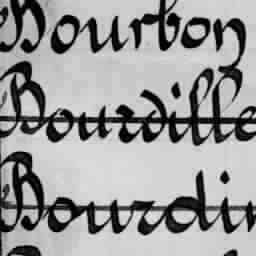 Bourbon
Bourdille
Bourdin